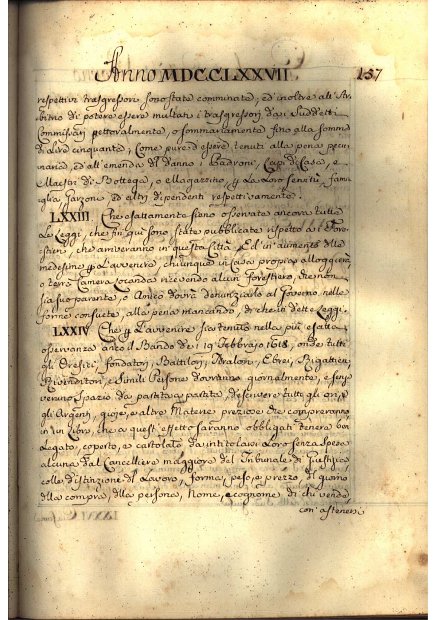 Anno MDCCLXXVII 157
respettivi trasgressori sono state comminate, ed inoltre all'Ar-
bitrio di potere essere multati i trasgressori dai Suddetti
Commissarj pettoralmente, o sommariamente fino alla somma
di Lire cinquanta, Come pure ed essere tenuti alla pena pecu
niaria, ed all'emenda di danno i Padroni, Capi di Casa, e
Maestri di Bottega, o Magazzino p La Loro servitù, fami-
glia Garzone ed altri dipendenti respettivamente.
LXXIII Che esattamente sieno osservate ancora tutte
Le Leggi, che fin qui sono state pubblicate rispetto a i Fore-
stieri, che arriveranno in questa Città, Ed in aumento delle
medesime p L'avvenire, chiunque in Casa propria alloggierà
o terrà Camera Locanda ricevendo alcun Forestiero, che non
sia suo parente, o Amico dovrà denunziarlo al Governo nelle
forme consuete, alla pena mancando, di che in dette Leggi.
LXXIV Che p L'avvenire sia tenuto nella più esatta
osservanza anco il Bando de i 19 Febbrajo 1618, onde tutti
gli Orefici, fondatori, Battilori, Bralori, Ebrei, Rigattieri
Rivenditori, e Simili Persone dovranno giornalmente, e senza
veruno Spazio da partita a partita, descrivere tutti gli ori, e
gli Argenti, gioje, e altre Materie preziose che compreranno
in un Libro, che a quest'effetto saranno obbligati tenere ben
Legato, coperto, e cartolato da intitolarsi Loro senza Spesa
alcuna dal Cancelliere maggiore del Tribunale di Giustizia
colla distinzione di Lavoro, forma, peso, e prezzo, il giorno
della compra, della persona, Nome, e cognome di chi vende,
con'astenersi